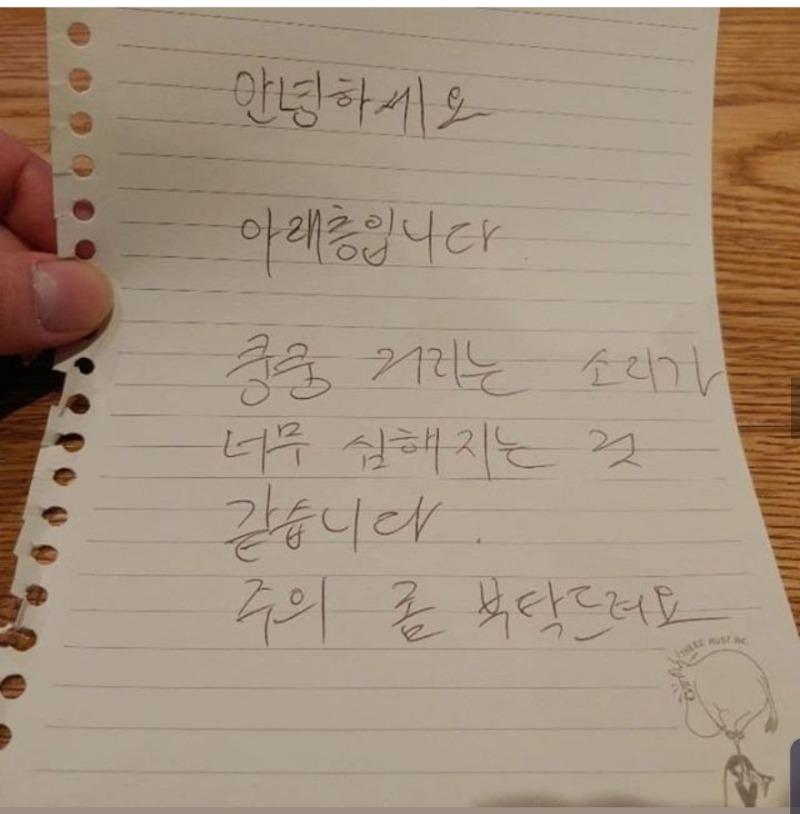 안녕하세요
아래층입니다
쿵쿵 거리는 소리가
너무 심해지는 것
같습니다.
주의 좀 부탁드려요
THERE MUST BE